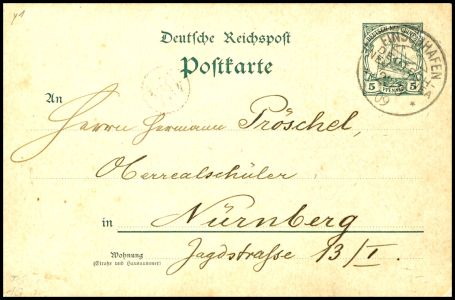 Deutsche Reichspost
Postkarte
5 PFENNIG 5
An
Herrn Hermann Pröschel,
Oberrealschüler
in Nürnberg
Wohnung
(Straße und Hausnummer)
Jagdstrasse 13/I.